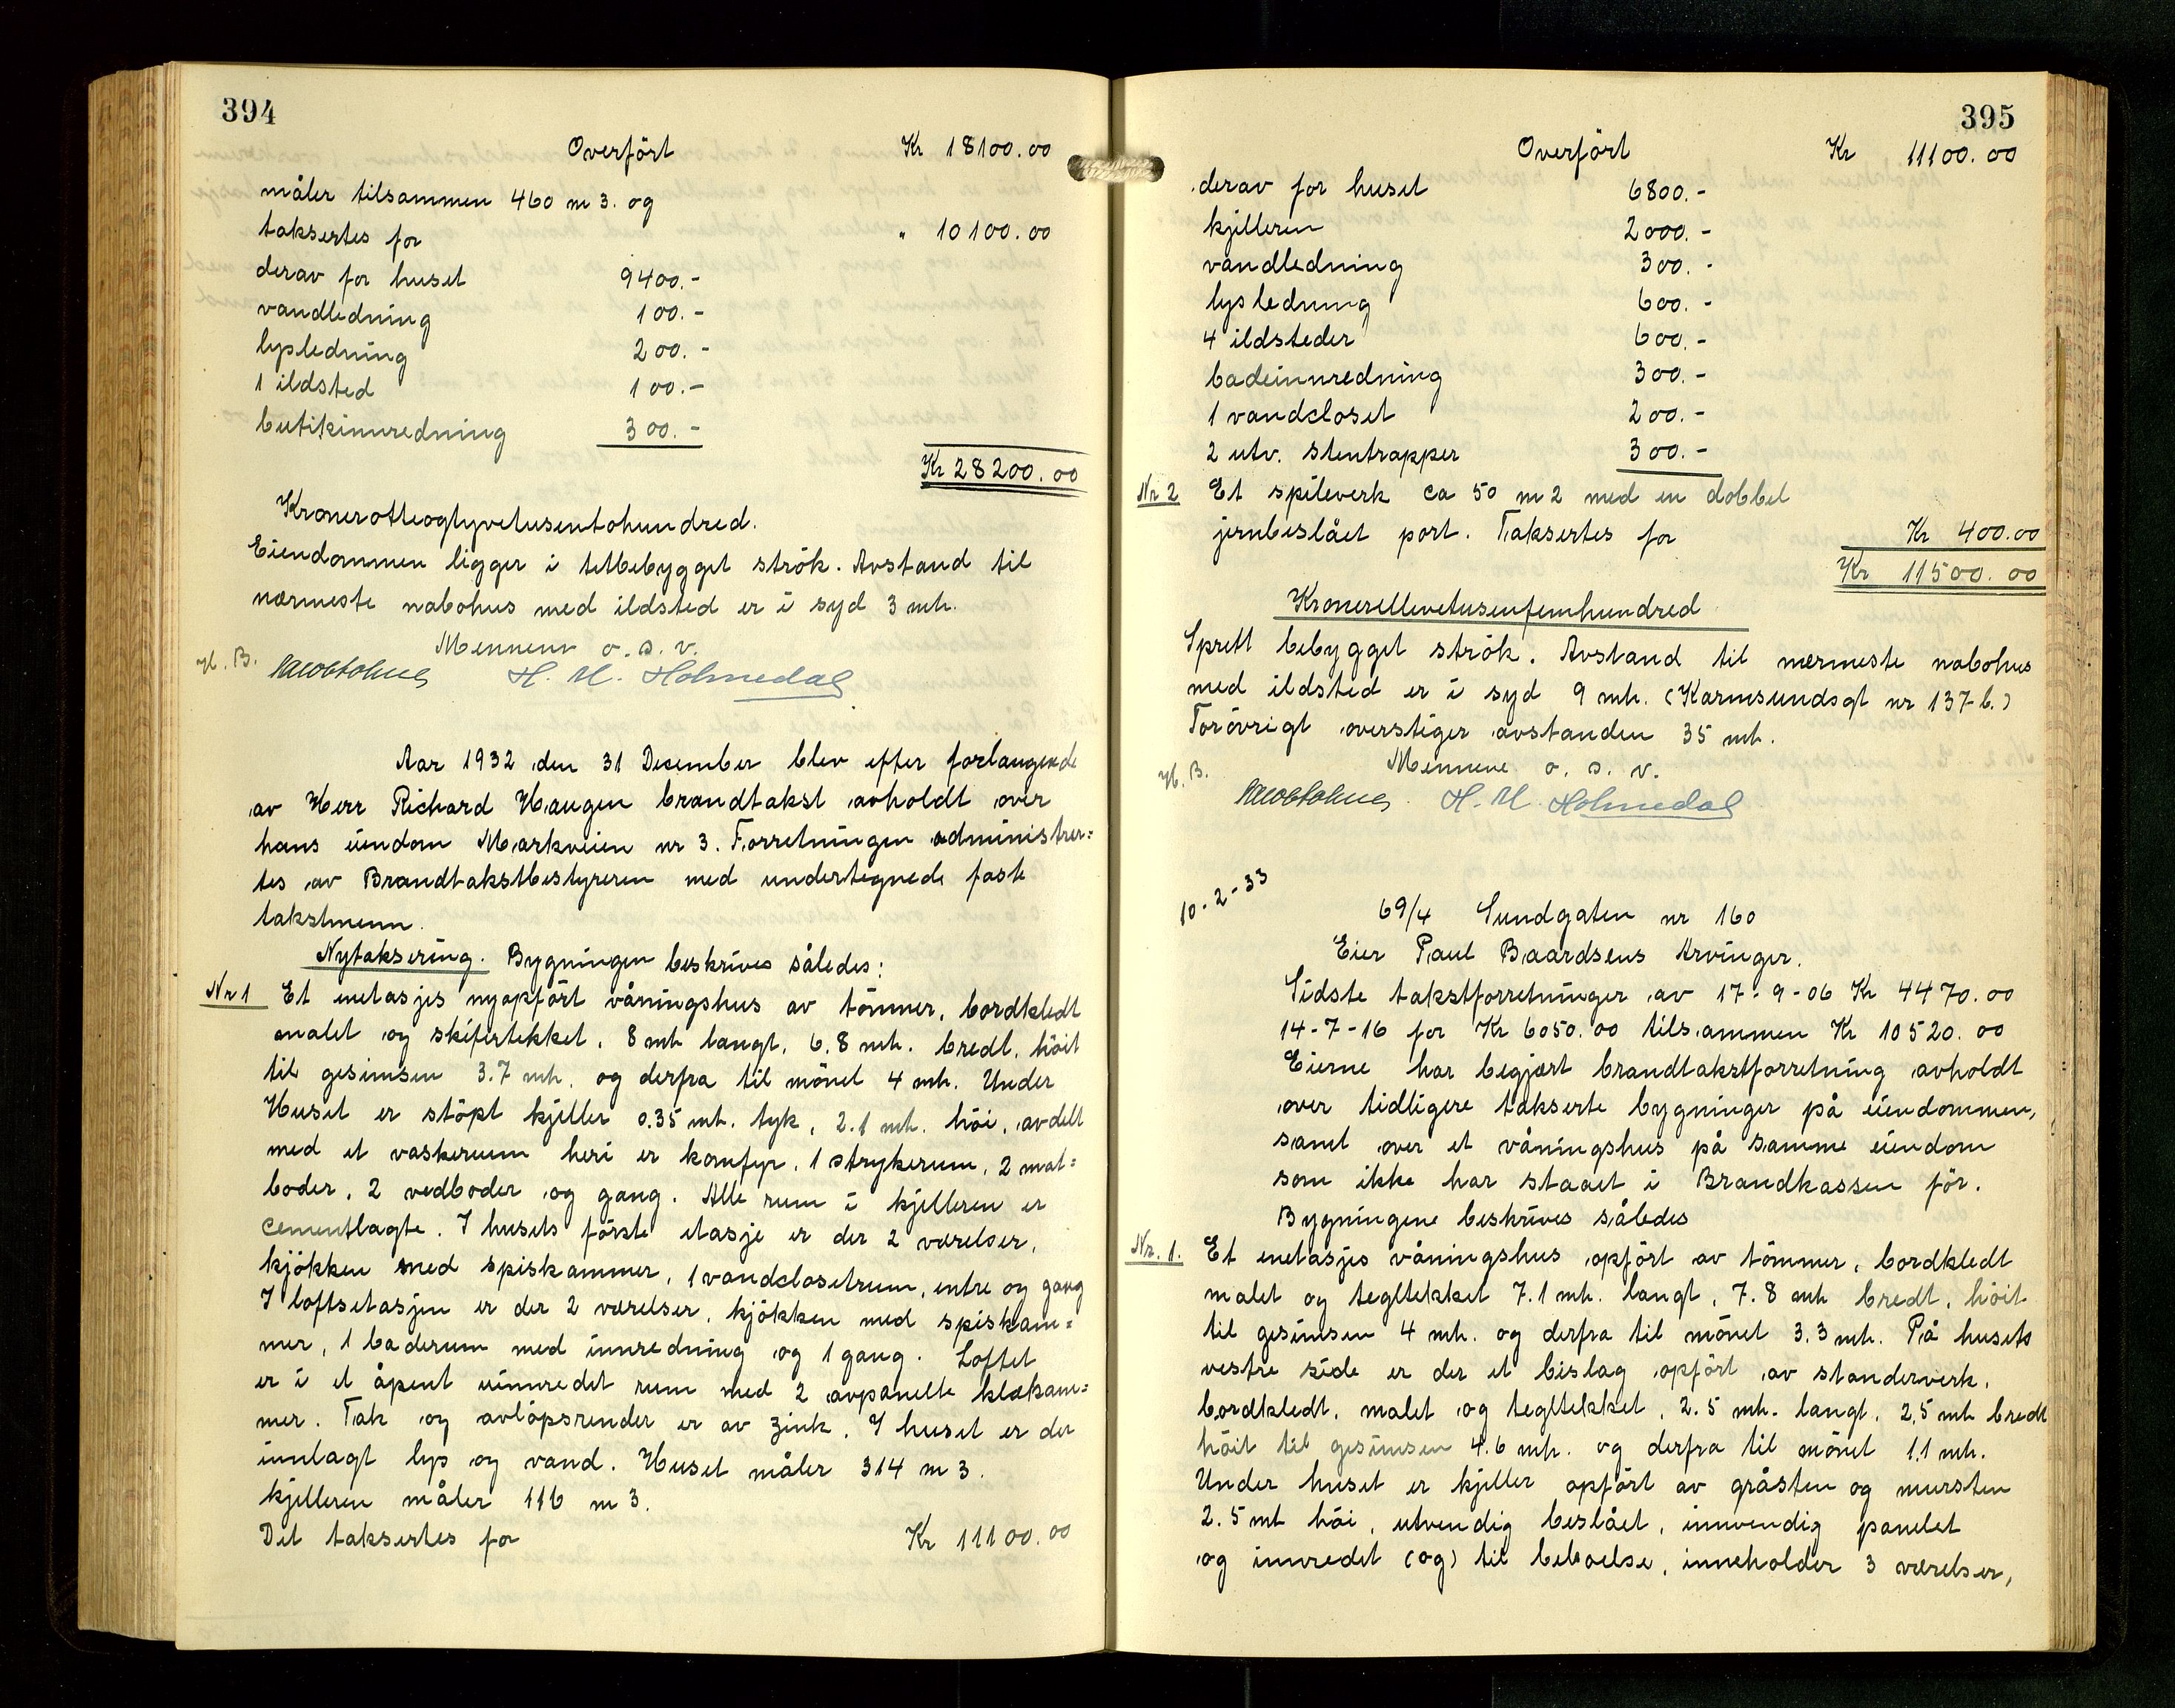 394
Overfört Kr 18100.00
måler tilsammen 460 m 3. og
taksertes for " 10100.00
derav for huset 9400.-
vandledning 100.-
lysledning 200.-
1 ildsted 100.-
butikinnredning 300.-
Kr 28200.00
Kronerotteogtyvetusentohundred.
Eiendommen ligger i tetbebygget strök. Avstand til
nærmeste nabohus med ildsted er i syd 3 mtr.
Mennene o. s. v.
H. B. H. M. Holmedal
Aar 1932 den 31 Desember blev efter forlangende
av Herr Richard Haugen brandtakst avholdt over
hans eiendom Markveien nr 3. Forretningen administrer=
tes av Brandtakstbestyreren med undertegnede faste
takstmenn.
Nytaksering. Bygningen beskrives således:
Nr 1 Et enetasjes nyopfört våningshus av tömmer, bordkledt
malet og skifertekket. 8 mtr langt, 6.8 mtr. bredt, höit
til gesimsen 3.7 mtr. og derfra til mönet 4 mtr. Under
Huset er stöpt kjeller 0.35 mtr. tyk, 2.1 mtr. höi, avdelt
med et vaskerum heri er komfyr, 1 strykerum, 2 mat=
boder, 2 vedboder og gang. Alle rum i kjelleren er
cementlagte. I husets förste etasje er der 2 værelser,
kjökken med spiskammer, 1 vandclosetrum, entre og gang
I loftsetasjen er der 2 værelser, kjökken med spiskam=
mer, 1 baderum med innredning og 1 gang. Loftet
er i et åpent uinnredet rum med 2 avpanelte klækam=
mer. Tak og avlöpsrender er av zink. I huset er der
innlagt lys og vand. Huset måler 314 m 3.
kjelleren måler 116 m 3.
Det taksertes for Kr 11100.00
395
Overfört Kr 11100.00
derav for huset 6800.-
kjelleren 2000.-
vandledning 300.-
lysledning 600.-
4 ildsteder 600.-
badeinnredning 300.-
1 vandcloset 200.-
2 utv. stentrapper 300.-
Nr 2 Et spileverk ca 50 m 2 med en dobbel
jernbeslået port. Taksertes for Kr 400.00
Kr 11500.00
Kronerellevetusenfemhundred
Sprett bebygget strök. Avstand til nærmeste nabohus
med ildsted er i syd 9 mtr. (Karmsundsgt nr 137 b.)
Forövrigt overstiger avstanden 35 mtr.
Mennene o. s. v.
H. B. H. M. Holmedal
10-2-33
69/4 Sundgaten nr 160
Eier Paul Baardsens Arvinger.
Sidste takstforretninger av 17-9-06 Kr 4470.00
14-7-16 for Kr 6050.00 tilsammen Kr 10520.00
Eierne har begjært brandtakstforretning avholdt
over tidligere takserte bygninger på eiendommen,
samt over et våningshus på samme eiendom
som ikke har staaet i Brandkassen för.
Bygningene beskrives således
Nr. 1. Et enetasjes våningshus opfört av tömmer, bordkledt
malet og tegltekket 7.1 mtr. langt, 7.8 mtr bredt, höit
til gesimsen 4 mtr. og derfra til mönet 3.3 mtr. På husets
vestre side er der et bislag opfört av standerverk,
bordkledt, malet og tegltekket, 2.5 mtr. langt, 2,5 mtr bredt
höit til gesimsen 4.6 mtr. og derfra til mönet 1.1 mtr.
Under huset er kjeller opfört av gråsten og mursten
2.5 mtr höi, utvendig beslået, innvendig panelet
og innredet (og) til beboelse, inneholder 3 værelser,